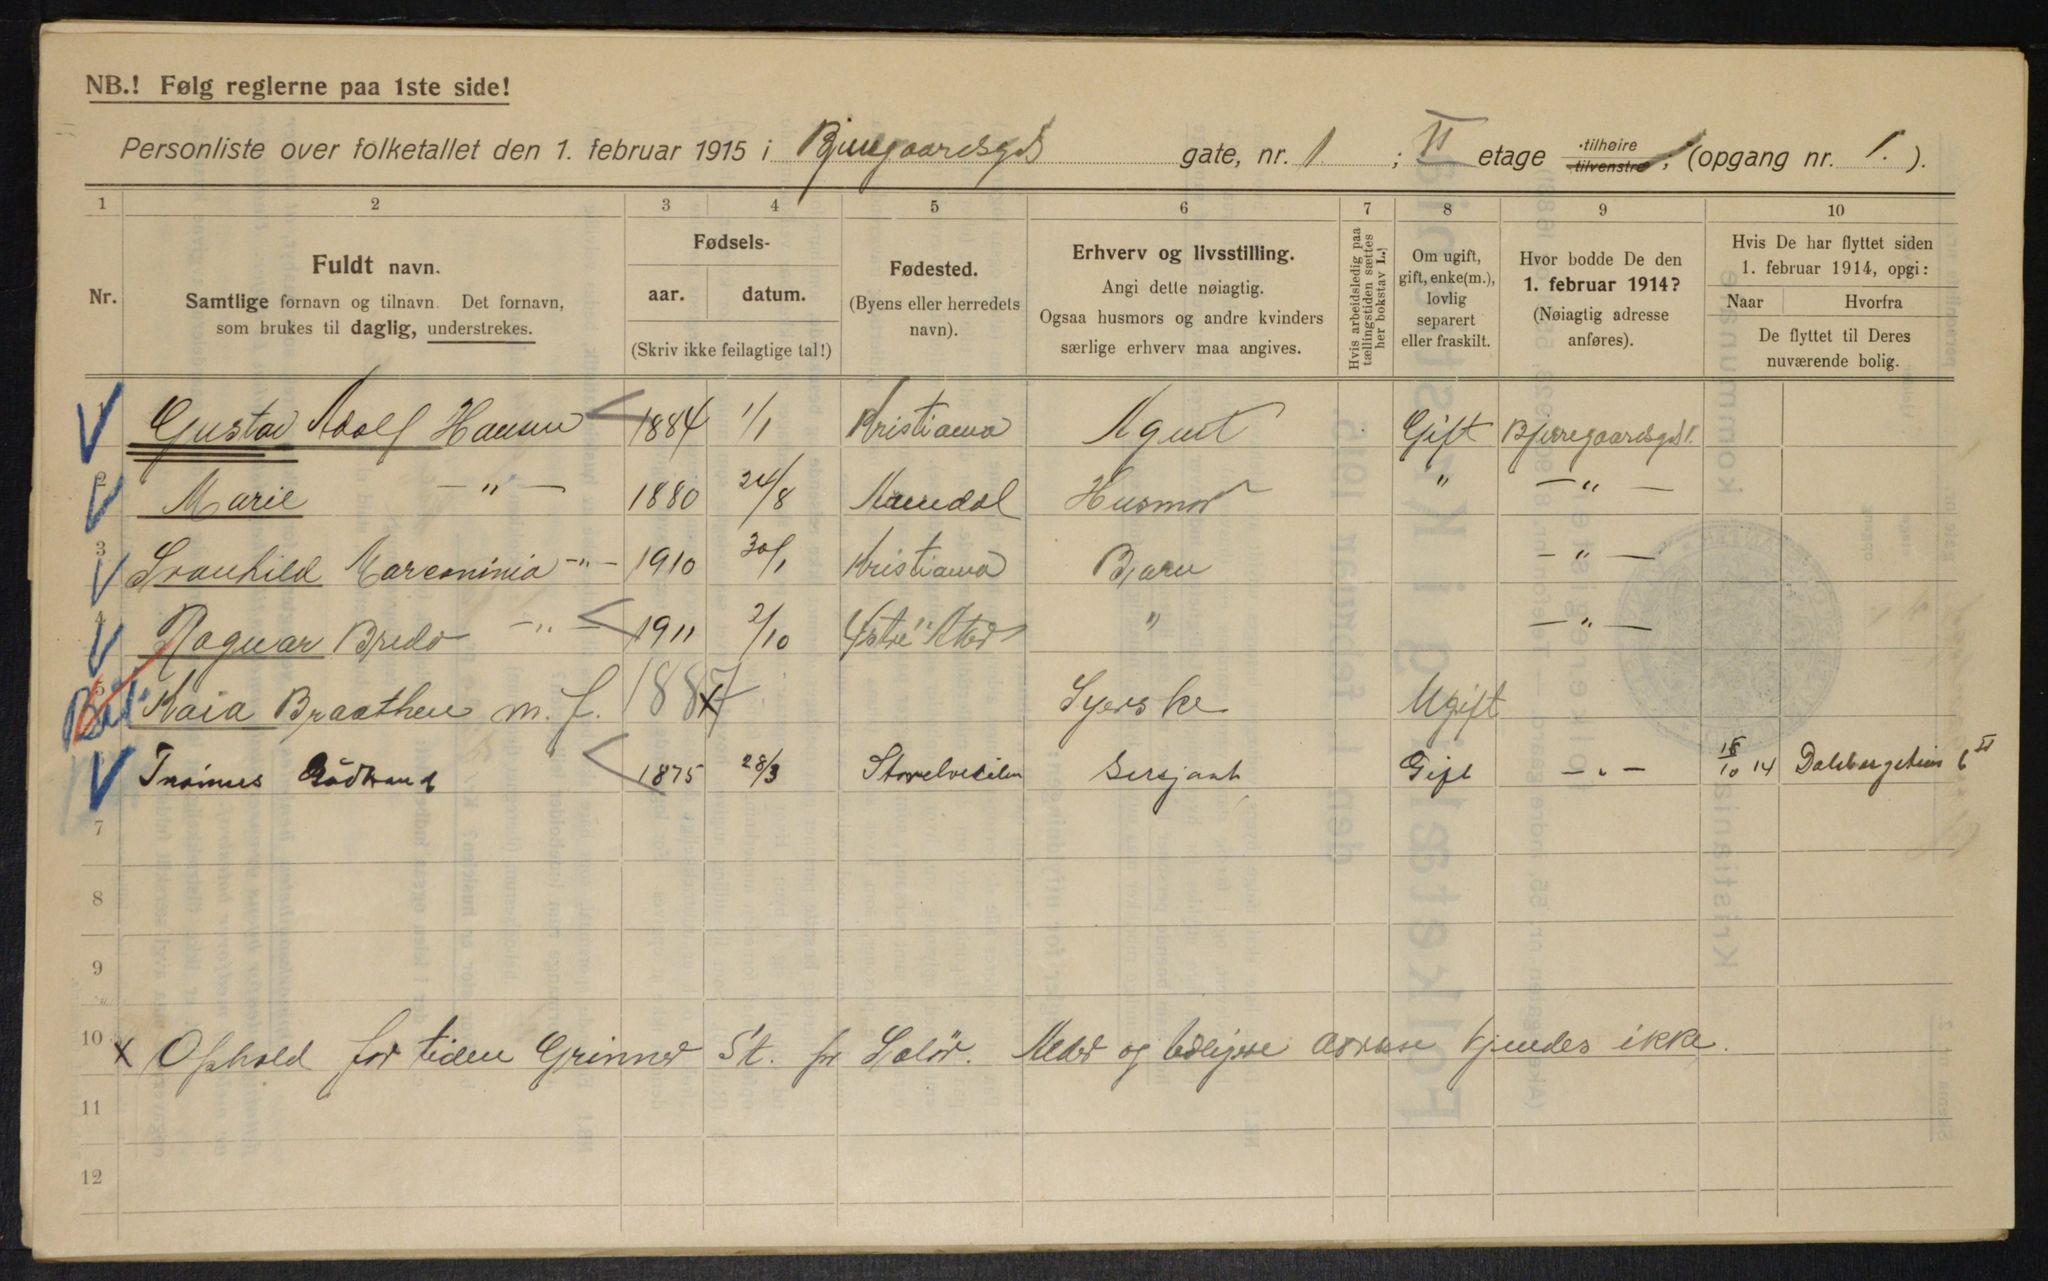 NB.! Følg reglerne paa 1ste side!
Personliste over folketallet den 1. februar 1915 i Bjerregaardsgd gate, nr. 1 ; II etage tilhøire tilvenstre ; (opgang nr. 1. ).
1 2 3 4 5 6 7 8 9 10
Nr.
Fuldt navn.
Samtlige fornavn og tilnavn. Det fornavn,
som brukes til daglig, understrekes.
Fødsels-
aar. datum.
(Skriv ikke feilagtige tal!)
Fødested.
(Byens eller herredets
navn).
Erhverv og livsstilling.
Angi dette nøiagtig.
Ogsaa husmors og andre kvinders
særlige erhverv maa angives.
Hvis arbeidsledig paa
tællingstiden sættes
her bokstav L.
Om ugift,
gift, enke(m.),
lovlig
separert
eller fraskilt.
Hvor bodde De den
1. februar 1914?
(Nøiagtig adresse
anføres).
Hvis De har flyttet siden
1. februar 1914, opgi:
Naar Hvorfra
De flyttet til Deres
nuværende bolig.
1 Gustav Adolf Hansen 1884 1/1 Kristiania Agent Gift Bjerregaardsgd 1.
2 Marie —"— 1880 24/8 Husmor " —"—
3 Svanhild Marconinia —"— 1910 30/1 Kristiania Barn —"—
4 Ragnar Bredo —"— 1911 2/10 " —"—
5 Kaia Braathen m. f. 1887 x Syerske Ugift
6 1875 28/3 Storelvedalen Sersjant Gift —"— 10 14 6 II
7
8
9
10
x Ophold for tiden Grinner St. pr Solør. Alder og tidligere adresse kjendes ikke.
11
12